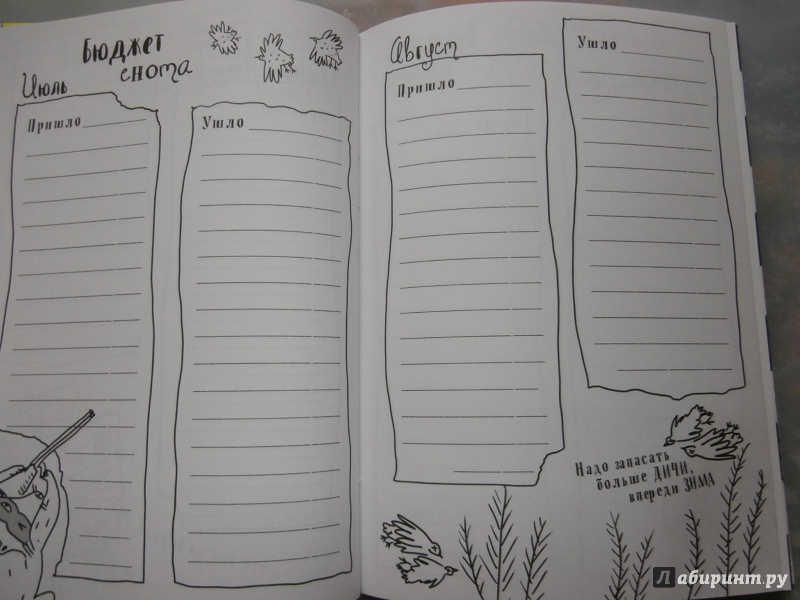 Бюджет
снота
Июль
Пришло
Ушло
Август
Пришло
Ушло
Надо запасать
больше ДИЧИ,
впереди ЗИМА
Лабиринт.ру